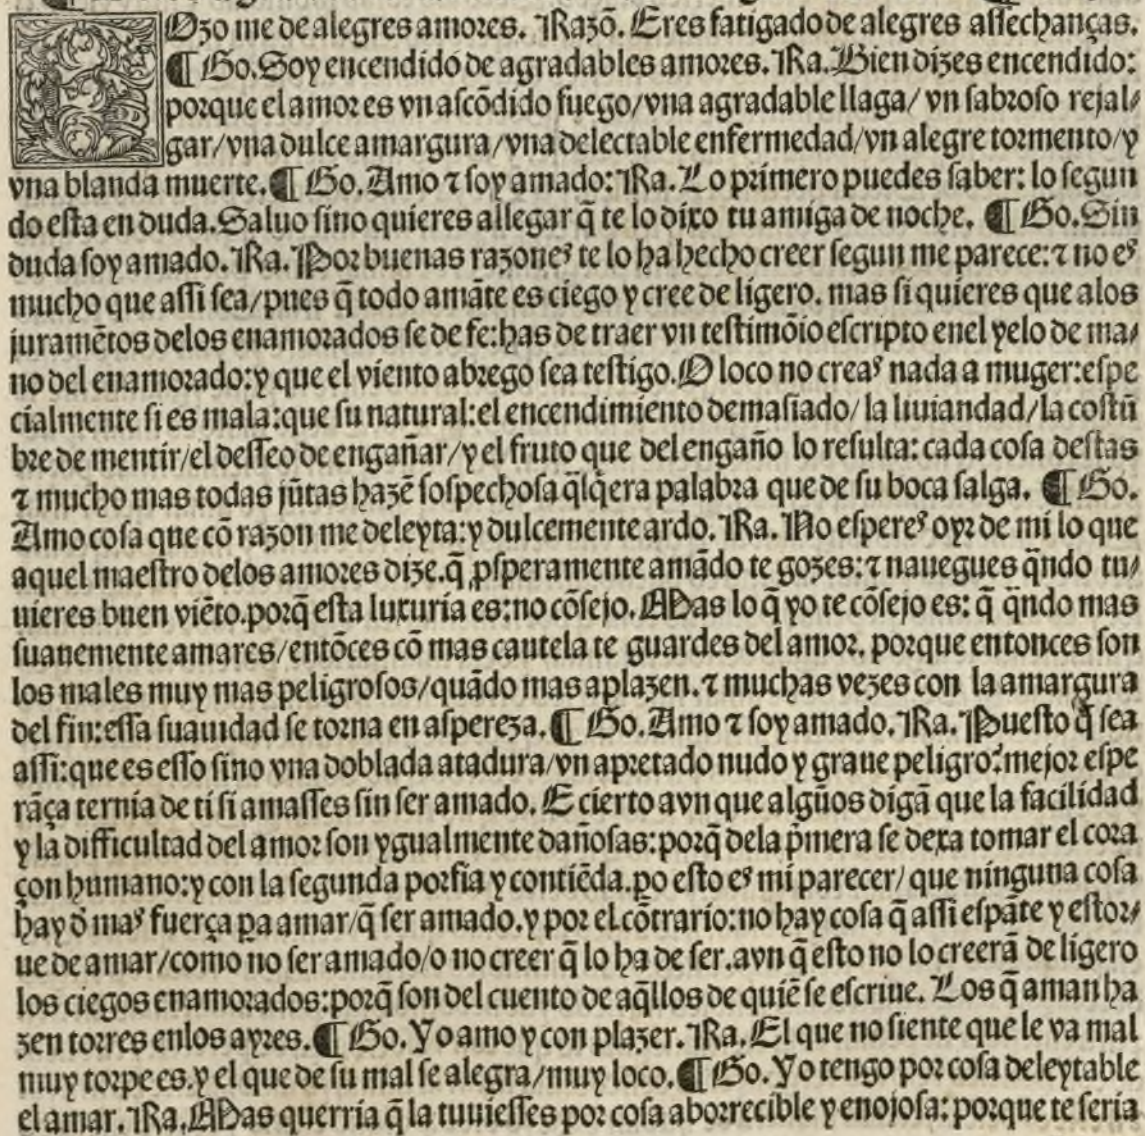 GOzo me de alegres amores. Razõ. Eres fatigado de alegres assechanças.
¶ Go. Soy encendido de agradables amores. Ra. Bien dizes encendido:
porque el amor es vn ascõdido fuego/vna agradable llaga/ vn sabroso rejal/
gar/vna dulce amargura/vna delectable enfermedad/vn alegre tormento/y
vna blanda muerte. ¶ Go. Amo ⁊ soy amado: Ra. Lo primero puedes saber: lo segun
do esta en duda. Saluo sino quieres allegar q̃ te lo dixo tu amiga de noche. ¶ Go. Sin
duda soy amado. Ra. Por buenas razones te lo ha hecho creer segun me parece: ⁊ no es
mucho que assi sea/pues q̃ todo amãte es ciego y cree de ligero. mas si quieres que alos
juramẽtos delos enamorados se de fe: has de traer vn testimõio escripto enel yelo de ma/
no del enamorado: y que el viento abrego sea testigo. O loco no creas nada a muger: espe
cialmente si es mala: que su natural: el encendimiento demasiado/ la liuiandad/la costũ
bre de mentir/el desseo de engañar/y el fruto que del engaño lo resulta: cada cosa destas
⁊ mucho mas todas jũtas hazẽ sospechosa q̃lq̃era palabra que de su boca salga. ¶ Go.
Amo cosa que cõ razon me deleyta: y dulcemente ardo. Ra. No esperes oyr de mi lo que
aquel maestro delos amores dize. q̃ ꝓsperamente amãdo te gozes: ⁊ nauegues q̃ndo tu/
uieres buen viẽto. porq̃ esta luxuria es: no cõsejo. Mas lo q̃ yo te cõsejo es: q̃ q̃ndo mas
suauemente amares/entõces cõ mas cautela te guardes del amor. porque entonces son
los males muy mas peligrosos/quãdo mas aplazen. ⁊ muchas vezes con la amargura
del fin: essa suauidad se torna en aspereza. ¶ Go. Amo ⁊ soy amado. Ra. Puesto q̃ sea
assi: que es esso sino vna doblada atadura/vn apretado nudo y graue peligro? mejor espe
rãça ternia de ti si amasses sin ser amado. E cierto avn que algũos digã que la facilidad
y la difficultad del amor son ygualmente dañosas: porq̃ dela p̃mera se dexa tomar el cora
çon humano: y con la segunda porfia y contiẽda. ꝑo esto es mi parecer/ que ninguna cosa
hay d̃ mas fuerça ꝑa amar/q̃ ser amado. y por el cõtrario: no hay cosa q̃ assi espãte y estor/
ue de amar/como no ser amado/o no creer q̃ lo ha de ser. avn q̃ esto no lo creerã de ligero
los ciegos enamorados: porq̃ son del cuento de aq̃llos de quiẽ se escriue. Los q̃ aman ha
zen torres enlos ayres. ¶ Go. Yo amo y con plazer. Ra. El que no siente que le va mal
muy torpe es. y el que de su mal se alegra/muy loco. ¶ Go. Yo tengo por cosa deleytable
el amar. Ra. Mas querria q̃ la tuuiesses por cosa aborrecible y enojosa: porque te seria